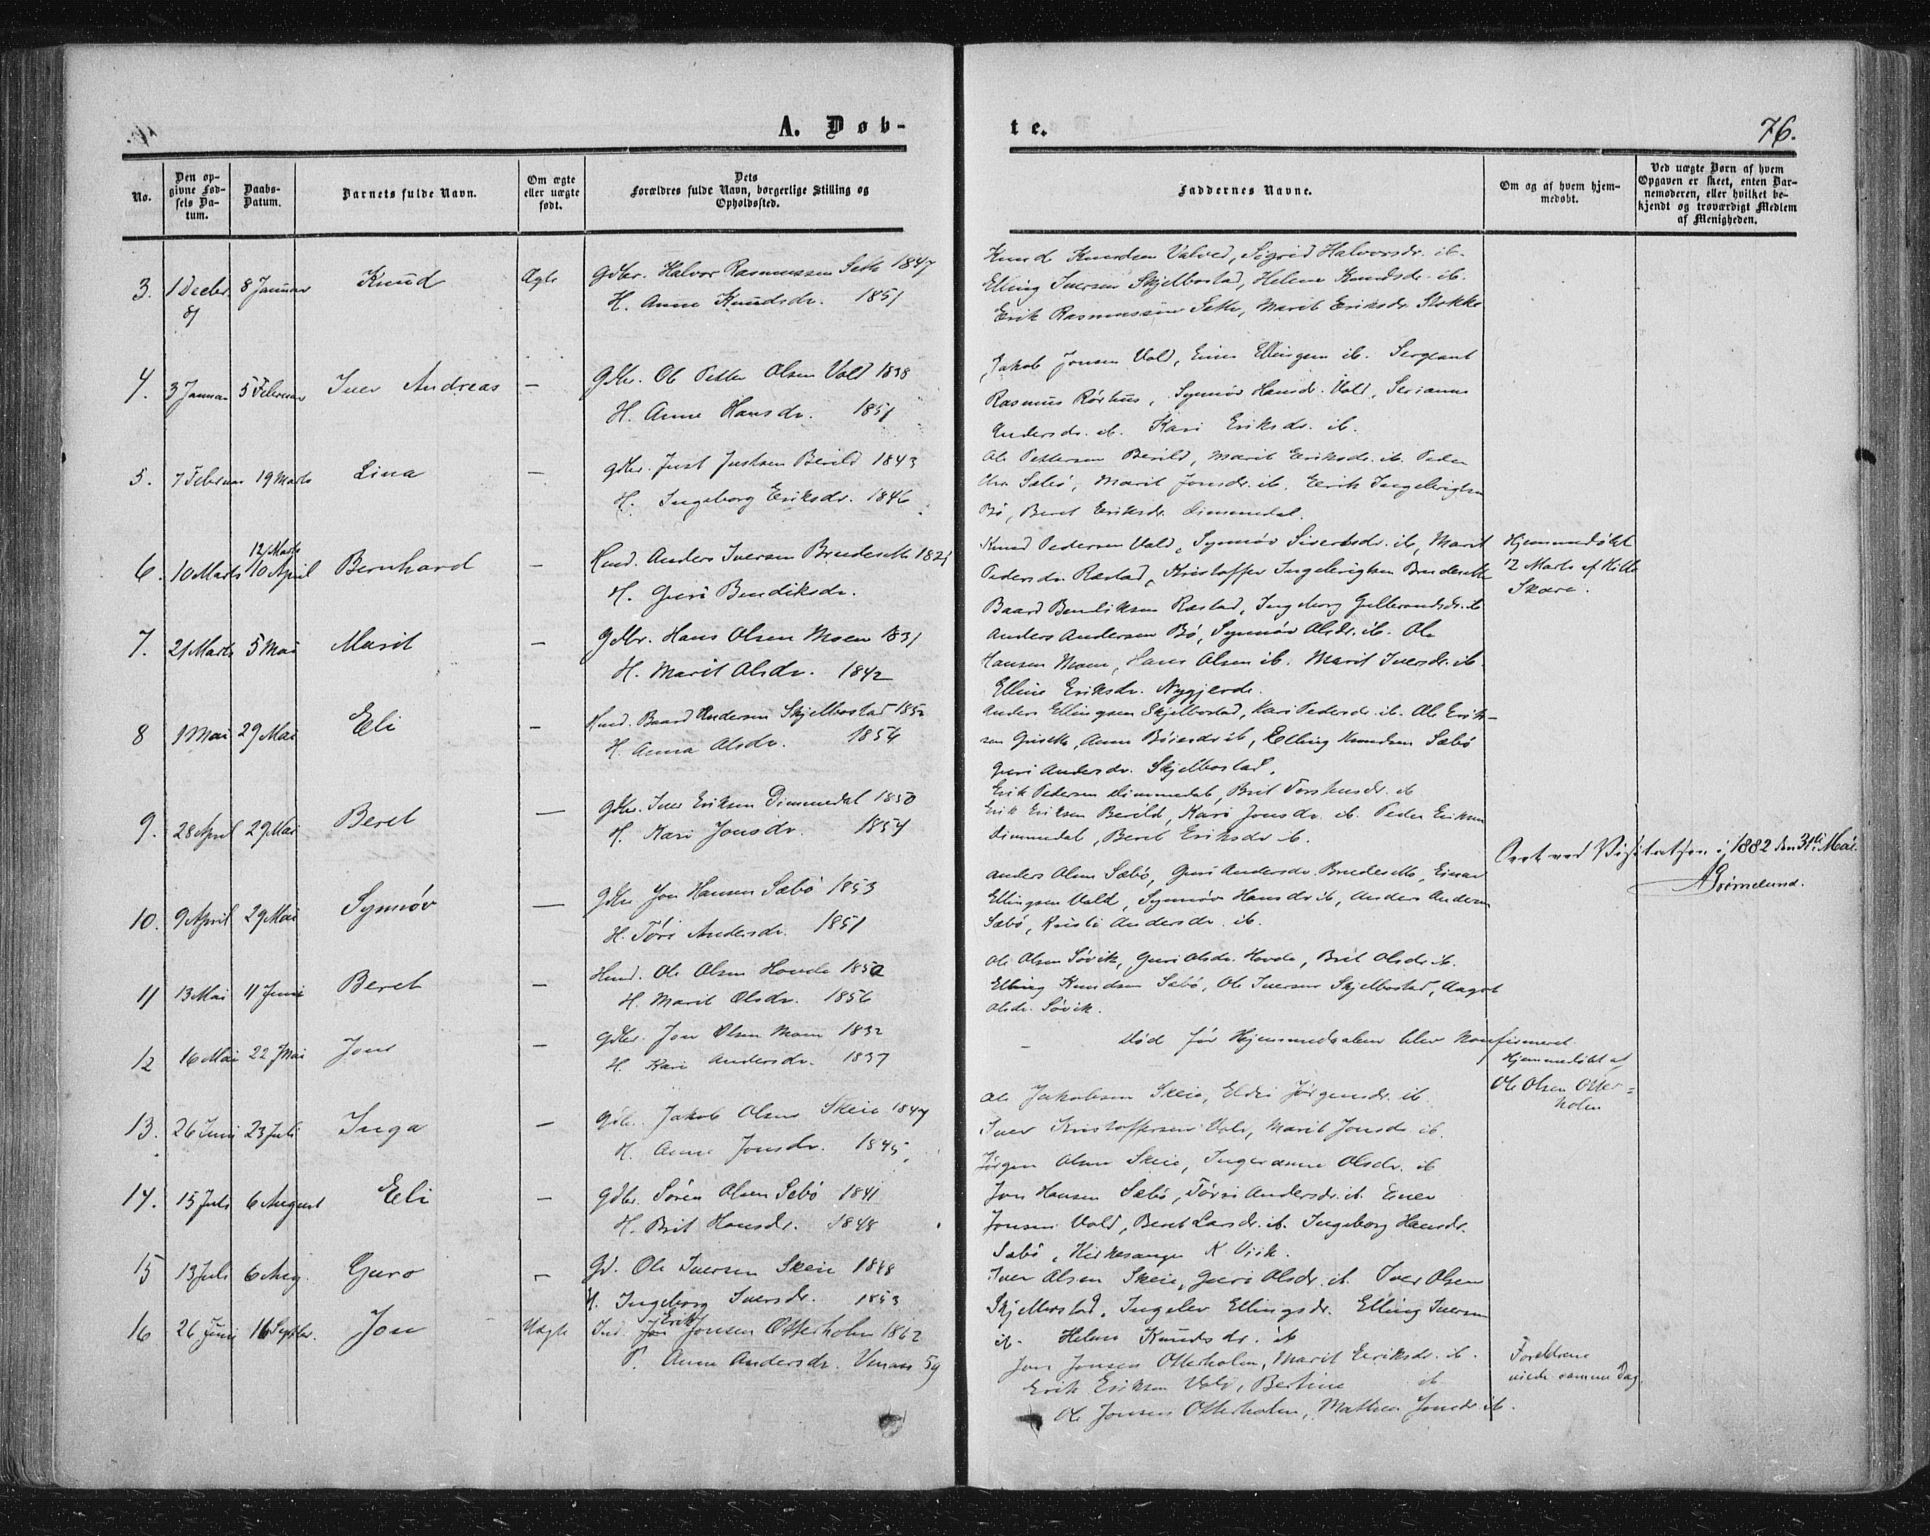 A. Døb-
te.
76.
No.
Den op-
givne Fød-
sels Da-
tum.
Daabs-
Datum.
Barnets fulde Navn.
Om ægte
eller uægte
født.
Dets
Forældres fulde Navn, borgerlige Stilling og
Opholdssted.
Faddernes Navne.
Om og af hvem hjem-
medøbt.
Ved uægte Børn af hvem
Opgaven er skeet, enten Bar-
nemoderen, eller hvilket be-
kjendt og troværdigt Medlem
af Menigheden.
3. 1 Decbr. 81 8 Januar Knud Ægte Gdbr. Halvor Rasmussen Sette 1847
H. Anne Knudsdr. 1851
Knud Knudsen Valved, Sigrid Halvorsdr. ib.
Elling Iversen Skjelbostad, Helene Knudsdr. ib.
Erik Rasmussen Sette, Marit Eriksdr. Stokke
4. 3 Januar 5 Februar Iver Andreas — Gdbr. Ole Petter Olsen Vold 1838
H. Anne Hansdr. 1851
Jakob Jonsen Vold, Einer Ellingsen ib. Sergeant
Rasmus Rørhus, Synnøv Hansd. Vold, Serianna
Andersdr. ib. Kari Eriksdr. ib.
5. 7 Februar 19 Marts Lina — Gdbr. Just Justsen Berild 1843
H. Ingeborg Eriksdr. 1846
Ole Pettersen Berild, Marit Eriksdr. ib. Peder
Chr. Sæbø, Marit Jonsdr. ib. Eerik Ingebrigtsen
Bø, Beret Eriksdr. Dimmedal.
6. 10 Marts 12 Marts 10 April Bernhard — Hmd. Anders Iversen Brudesette 1821
H. Guri Bendiksdr.
Knud Pedersen Vold, Synnøv Sivertsdr. ib, Marit
Pedersdr. Røstad, Kristoffer Ingebrigtsen Brudesette
Baard Bendiksen Røstad, Ingeborg Gulbrandsdr. ib
Hjemmedøbt
12 Marts af
Skare.
7. 21 Marts 5 Mai Marit — Gdbr. Hans Olsen Moen 1831
H. Marit Olsdr. 1842
Anders Andersen Bø, Synnøv Olsdr. ib. Ole
Hansen Moen, Hans Olsen ib. Marit Iversdr. ib
Elline Eriksdr. Nygjerde.
8 1 Mai 29 Mai Eli — Hmd. Baard Andersen Skjelbostad 1852
H. Anna Olsdr. 1854
Anders Ellingsen Skjelbostad, Kari Pedersdr. ib. Ole Erik-
sen Anne ib, Elling Knudsen Sæbø
Guri Andersdr. Skjelbostad.
9. 28 April 29 Mai Beret — Gdbr. Iver Eriksen Dimmedal 1850
H. Kari Jonsdr. 1854
Erik Pedersen Dimmedal, Brit ib
Erik Eriksen Berild, Kari Jonsdr. ib. Peder Eriksen
Dimmedal, Beret Eriksdr ib.
10. 9 April 29 Mai Synnøv — Gdbr Jon Hansen Sæbø 1853
H. Tøri Andersdr. 1851
Anders Olsen Sæbø, Guri Andersdr. Brudesette, Einar
Ellingsen Vold, Synnøv Hansdr ib, Anders Andersen
Sæbø, Kristi Andersdr. ib.
Seet ved Visitatsen i 1882 den 31te Mai.
11 13 Mai 11 Juni Beret — Hmd. Ole Olsen Hovde 1850
H. Marit Olsdr. 1856
Ole Olsen Søvik, Guri Olsdr. Hovde, Brit Olsdr. ib.
Elling Knudsen Sæbø, Ole Iversen Skjelbostad, Aagot
Olsdr. Søvik.
12 16 Mai 22 Mai Jon — Gdbr. Jon Olsen Moen 1832
H. Kari Andersdr. 1837
— død før Hjemmedaaben blev konfirmeret.
Hjemmedøbt af
Ole Olsen Otter-
holm
13. 26 Juni 23 Juli Inga — Gdbr. Jakob Olsen Skeie 1847
H. Anne Jonsdr. 1845
Ole Jakobsen Skeie, Eldri Jørgensdr. ib
Iver Kristoffersen Vold, Marit Jonsdr. ib.
Jørgen Olsen Skeie, Ingeranna Olsdr. ib
14. 15 Juli 6 August Eli — Gdbr. Søren Olsen Sæbø 1841
H. Brit Hansdr. 1848
Jon Hansen Sæbø, Tøri Andersdr. ib. Einer
Jonsen Vold, Beret Larsdr. ib. Ingeborg Hansdr.
Sæbø, Kirkesanger K Vik.
15 13 Juli 6 Aug. Guro — Gd. Ole Iversen Skeie 1848
H. Ingeborg Iversdr. 1853
Iver Olsen Skeie, Guri Olsdr. ib. Iver Olsen
Skjelbostad, Ingelev Ellingsdr. Elling Iversen
ib. Helene Knudsdr. ib
16 26 Juni 16 Septbr. Jon Uægte Ind. Erik Jonsen Otterholm 1862
P. Anne Andersdr. Venaas 59
Jon Jonsen Otterholm, Marit Eeriksdr. ib.
Erik Eriksen Vold, Bertine ib
Ole Jonsen Otterholm, Mathea Jonsdr. ib.
Forældrene
viede samme Dag.